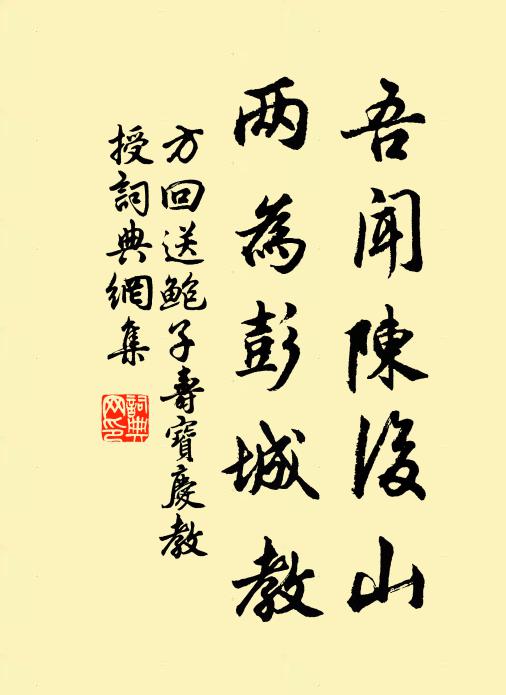 吾闻陳後山
两為彭城教
方回送鲍子壽寶慶教
授詞典網集
詞典
网印